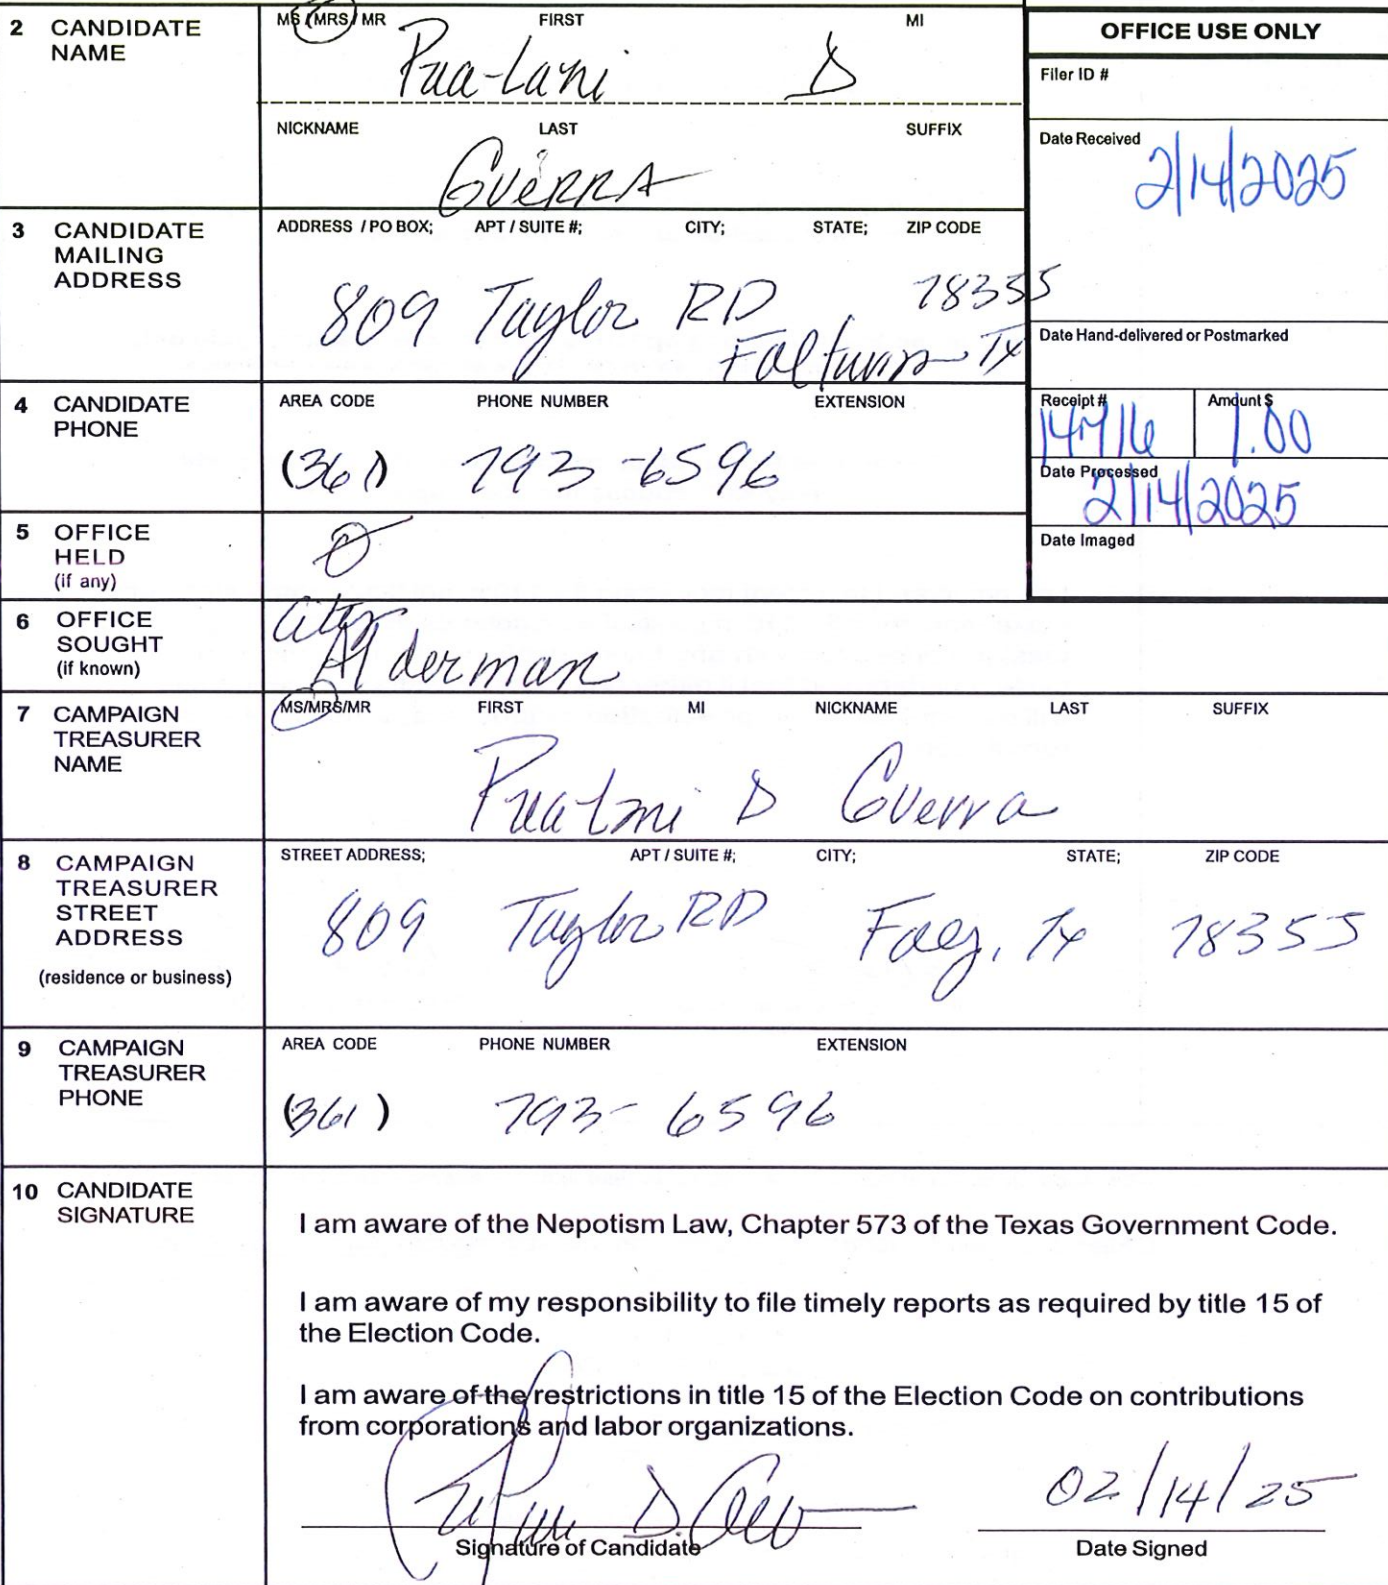 2 CANDIDATE NAME
MS / MRS / MR FIRST MI
Pua-Lani D
NICKNAME LAST SUFFIX
GUERRA
OFFICE USE ONLY
Filer ID #
Date Received
2/14/2025
Date Hand-delivered or Postmarked
Receipt # Amount $
1.00
Date Processed
2/14/2025
Date Imaged
3 CANDIDATE MAILING ADDRESS
ADDRESS / PO BOX; APT / SUITE #; CITY; STATE; ZIP CODE
809 Taylor RD 78355
Falfurrias TX
4 CANDIDATE PHONE
AREA CODE PHONE NUMBER EXTENSION
(361) 793-6596
5 OFFICE HELD (if any)
6 OFFICE SOUGHT (if known)
City
Alderman
7 CAMPAIGN TREASURER NAME
MS/MRS/MR FIRST MI NICKNAME LAST SUFFIX
Pua-Lani D Guerra
8 CAMPAIGN TREASURER STREET ADDRESS
(residence or business)
STREET ADDRESS; APT / SUITE #; CITY; STATE; ZIP CODE
809 Taylor RD , Tx 78355
9 CAMPAIGN TREASURER PHONE
AREA CODE PHONE NUMBER EXTENSION
(361) 793-6596
10 CANDIDATE SIGNATURE
I am aware of the Nepotism Law, Chapter 573 of the Texas Government Code.
I am aware of my responsibility to file timely reports as required by title 15 of
the Election Code.
I am aware of the restrictions in title 15 of the Election Code on contributions
from corporations and labor organizations.
02/14/25
Signature of Candidate Date Signed